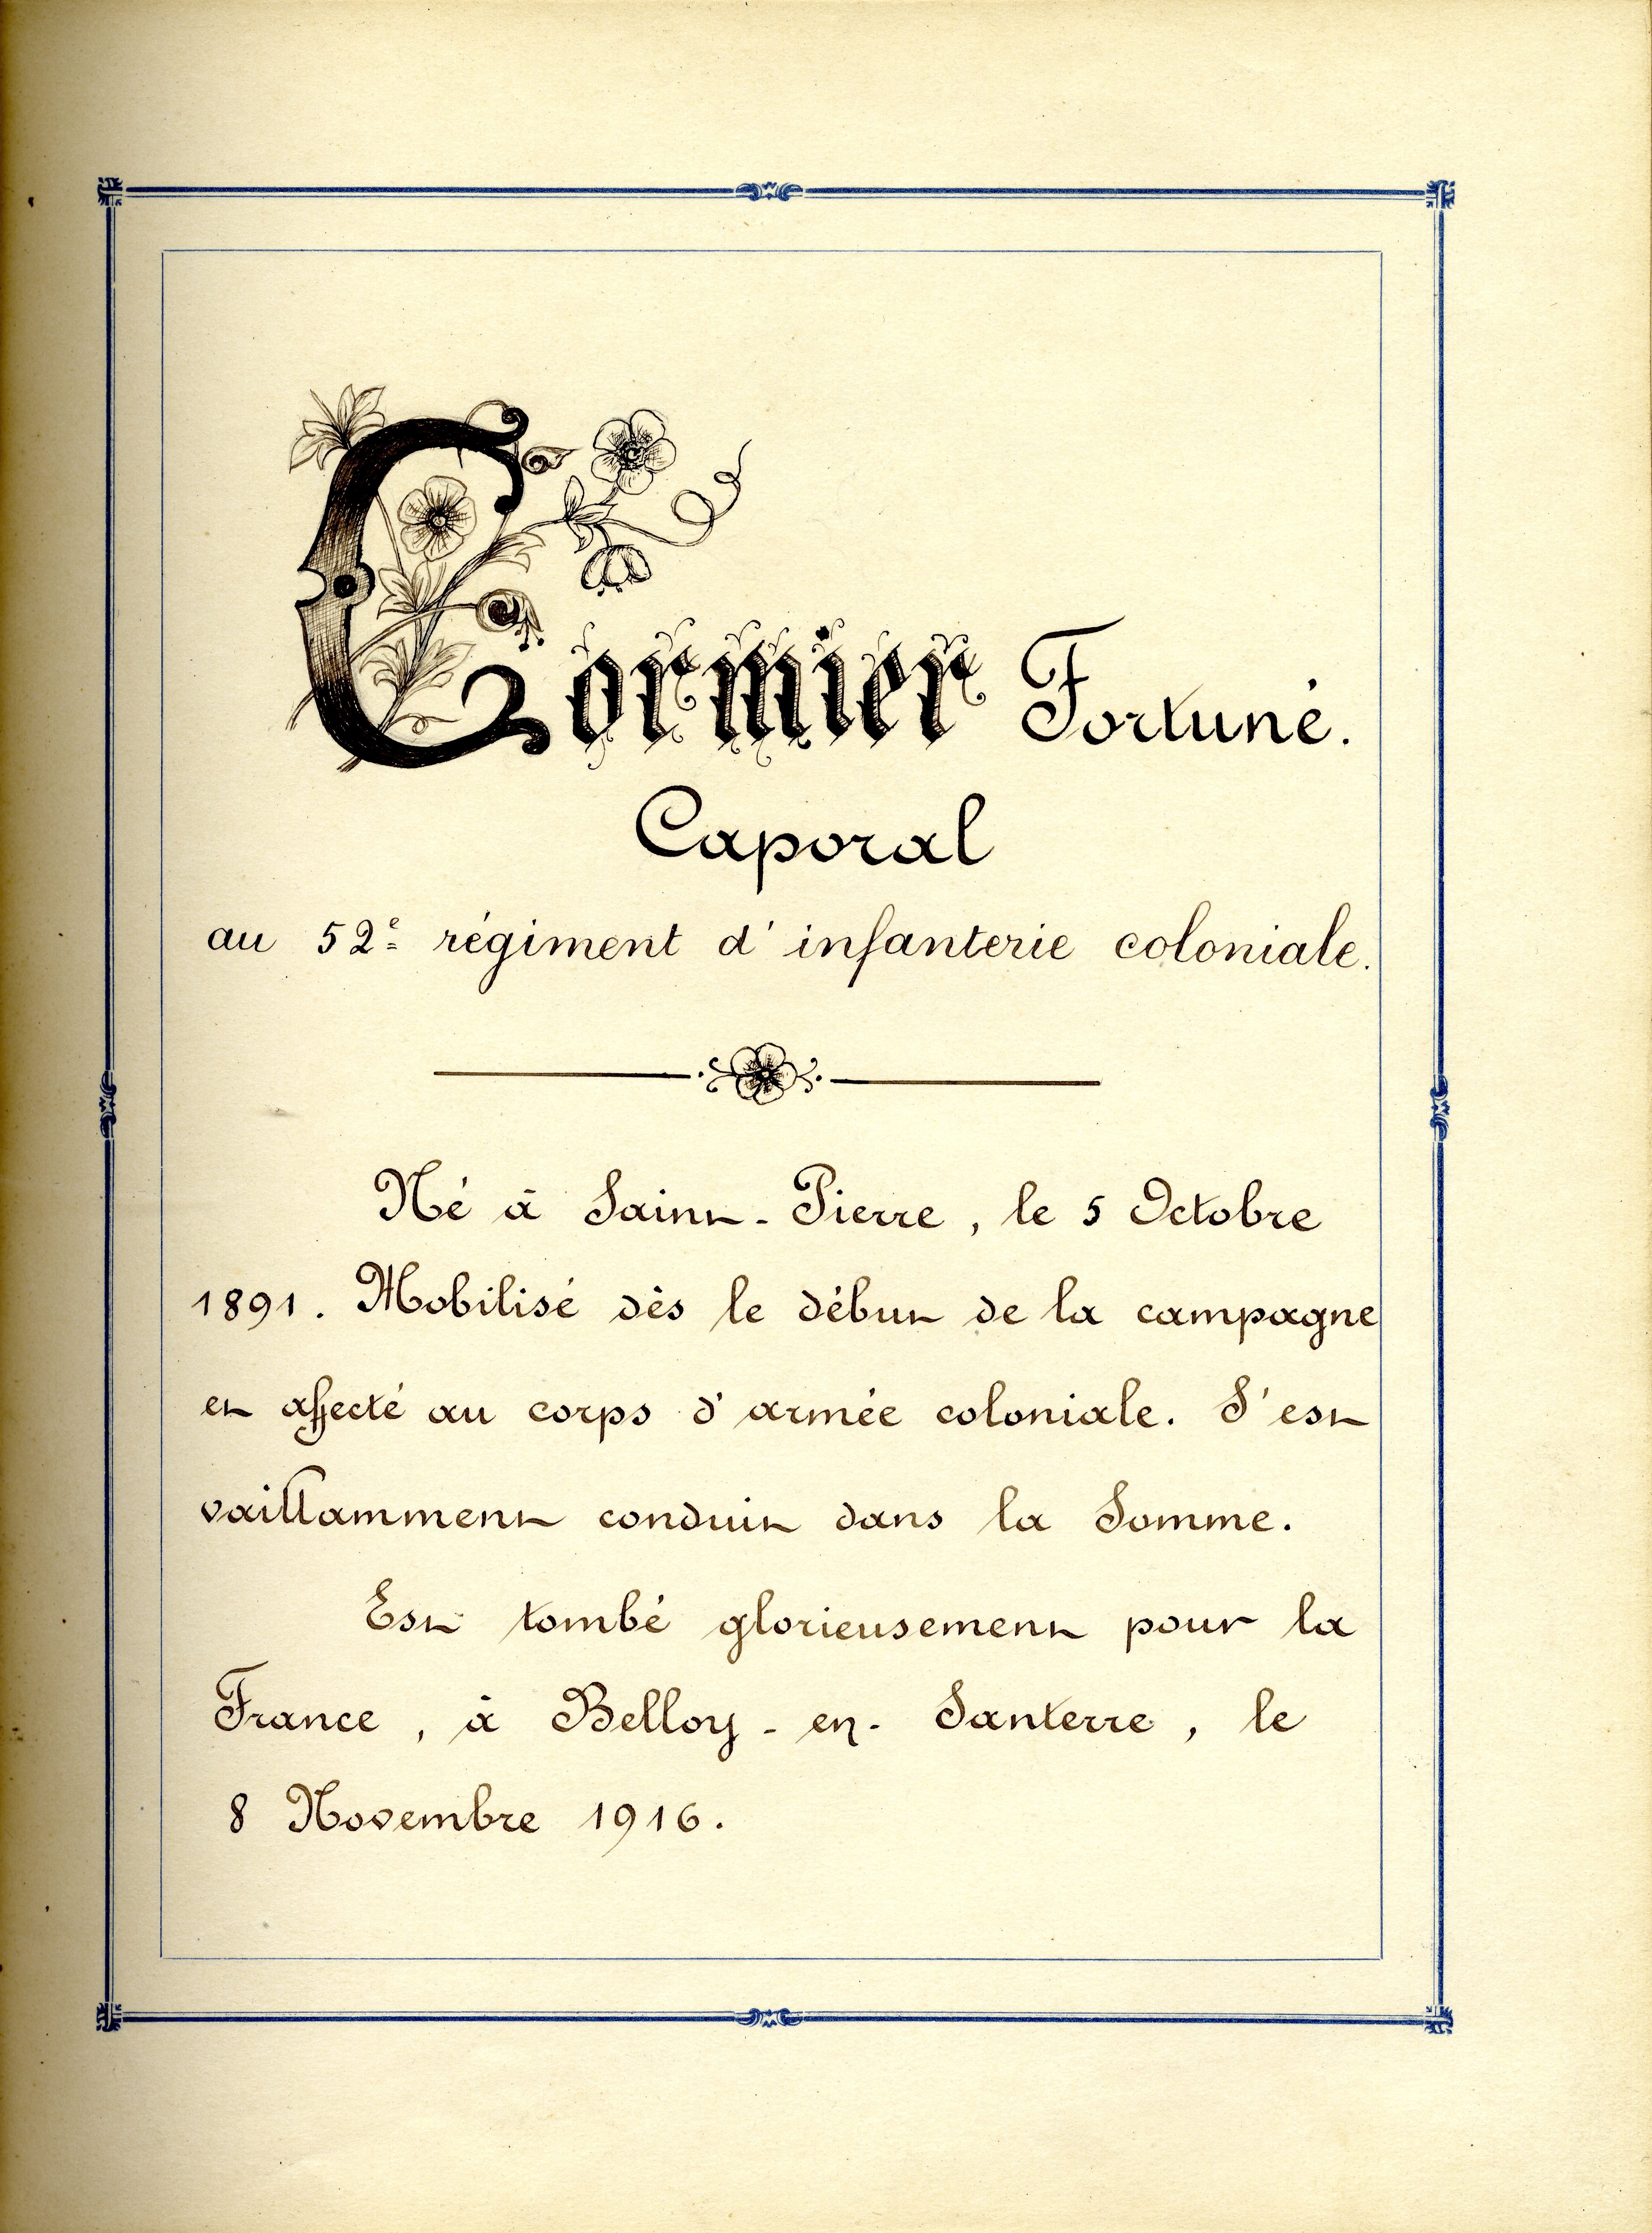 Cormier Fortuné.
Caporal
au 52e régiment d'infanterie coloniale.
Né à Saint-Pierre, le 5 Octobre
1891. Mobilisé dès le début de la campagne
et affecté au corps d'armée coloniale. S'est
vaillamment conduit dans la Somme.
Est tombé glorieusement pour la
France, à Belloy-en-Santerre, le
8 Novembre 1916.